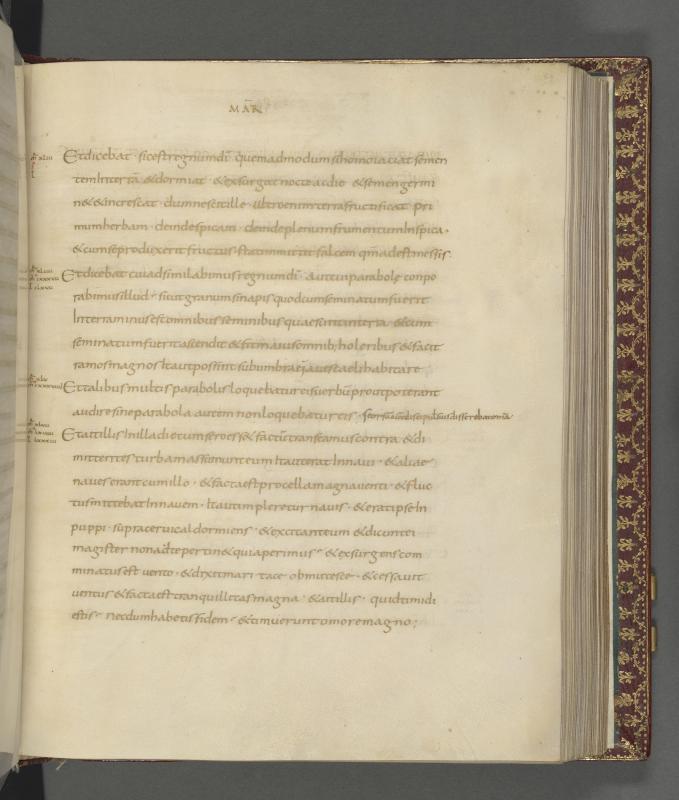 MAR
Et dicebat · sic est regnum dī quemadmodum si homo iaciat semen
tem in terrā & dormiat · & exsurgat nocte ac die & semen germi
n& & increscat · dum nescit ille · ultro enim terra fructificat pri
mum herbam · deinde spicam · deinde plenum frumentum in spica ·
& cum se produxerit fructus · statim mittit falcem qm̄ adest messis ·
Et dicebat cui adsimilabimus regnum dī · aut cui parabolę conpo
rabimus illud · sicut granum sinapis quod cum seminatum fuerit
In terra minus est omnibus seminibus quae sunt in terra & cum
seminatum fuerit ascendit & fit maius omnib; holeribus & facit
ramos magnos Ita ut possint sub umbra eius aues caeli habitare
Et talibus multis parabolis loquebatur eis uerbū prout poterant
audire sine parabola autem non loquebatur eis · seorsum
Et ait illis In illa die cum sero ess& factū transeamus contra & di
mittentes turbam assumunt eum Ita ut erat In naui · & aliae
naues erant cum illo · & facta est procella magna uenti · & fluc
tus mittebat In nauem · Ita ut impleretur nauis · & erat ipse In
puppi · supra ceruical dormiens · & excitant eum & dicunt ei
magister non ad te pertin& quia perimus · & exsurgens com
minatus est uento · & dixit mari tace obmutesce · & cessauit
uentus & facta est tranquillitas magna · & ait illis · quid timidi
estis · necdum habetis fidem · & timuerunt timore magno ;